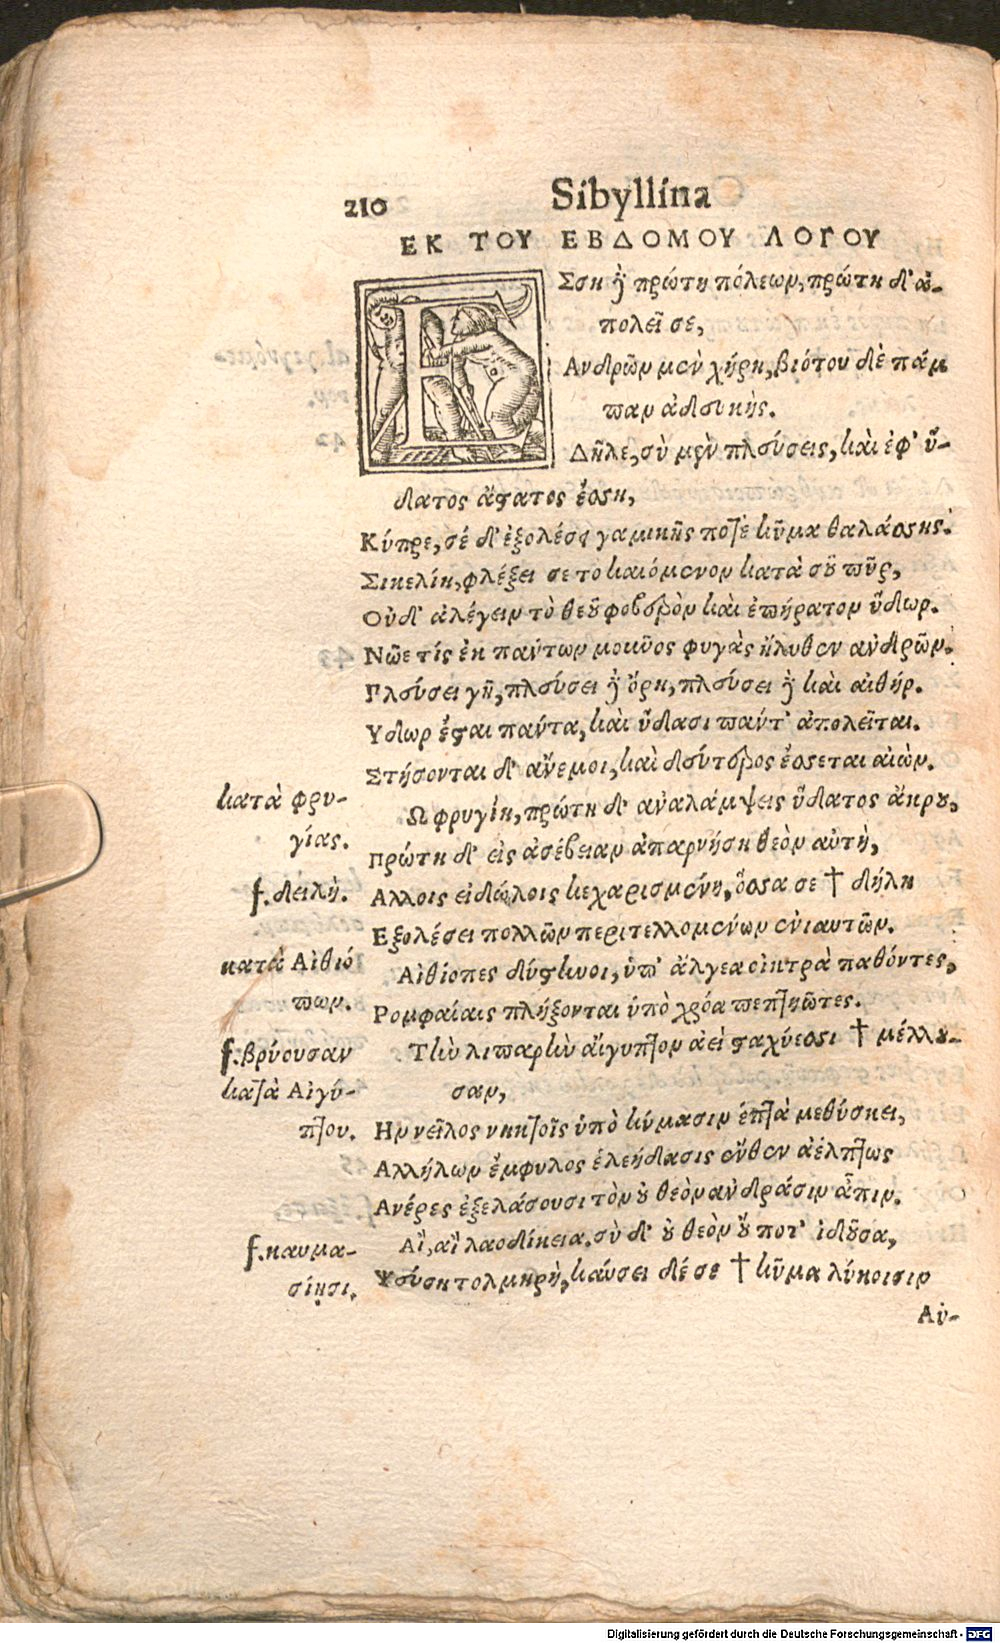 210 Sibyllina
ΕΚ ΤΟΥ ΕΒΔΟΜΟΥ ΛΟΓΟΥ
ΕΣση καὶ πρώτη πόλεων, πρώτη δ' ἀ-
πολεῖ σε,
Ανδρῶν μὲν χήρη, βιότου δὲ πάμ
παν ἀδευκής.
Δῆλε, σὺ μὲν πλεύσεις, καὶ ἐφ' ὕ-
δατος ἄστατος ἔσση,
Κύπρε, σέ δ' ἐξολέσει γαμικῆς ποτὲ κῦμα θαλάσσης.
Σικελίη, φλέξει σε το καιόμενον κατὰ σοῦ πῦρ,
Οὐδ' ἀλέγειν τὸ θεοῦ φοβερὸν καὶ ἐπήρατον ὕδωρ.
Νῶε τίς ἐκ παντων μοῦνος φυγὰς ἤλυθεν ἀνδρῶν.
Γλεύσει γῆ, πλεύσει καὶ ὄρη, πλεύσει καὶ καὶ αἰθήρ.
Υδωρ ἔσται παντα, καὶ ὕδασι παντ' ἀπολεῖται.
Στήσονται δ' ἄνεμοι, καὶ δεύτερος ἔσσεται αἰὼν.
κατὰ φρυ-
γίας.
Ω φρυγίη, πρώτη δ' ἀναλάμψεις ὕδατος ἄκρου,
Πρώτη δ' εἰς ἀσέβειαν ἀπαρνήση θεὸν αὐτὴ,
f. δειλὴ.
Αλλοις εἰδώλοις κεχαρισμένη, ὅσσα σε † δήλη
Εξολέσει πολλῶν περιτελλομένων ἐνιαυτῶν.
κατὰ Αἰθιό
πων.
Αἰθίοπες δύστκνοι, ὑπ' ἄλγεα οἰκτρὰ παθόντες,
Ρομφαίαις πλήξονται ὑπὸ χρόα πεπτηῶτες.
f. βρύουσαν
κατὰ Αἰγύ-
πτου.
Τὴν λιπαρὴν αἴγυπτον ἀεὶ σταχύεσσι † μέλλου-
σαν,
Ην νεῖλος νηκτοῖς ὑπὸ κύμασιν ἑπτὰ μεθύσκει,
Αλλήλων ἔμφυλος ἐλεήδασις ἔνθεν ἀέλπτως
Ανέρες ἐξελάσουσι τὸν οὐ θεὸν ἀνδράσιν ἆπιν.
Αἴ, αἴ λαοδίκεια. σὺ δ' οὐ θεὸν οὔ ποτ' ἰδοῦσα,
f. καυμα-
σίῃσι.
Ψεύση τολμηρὴ, καύσει δέ σε † κῦμα λύκοισιν
Αὐ-
Digitalisierung gefördert durch die Deutsche Forschungsgemeinschaft - DFG